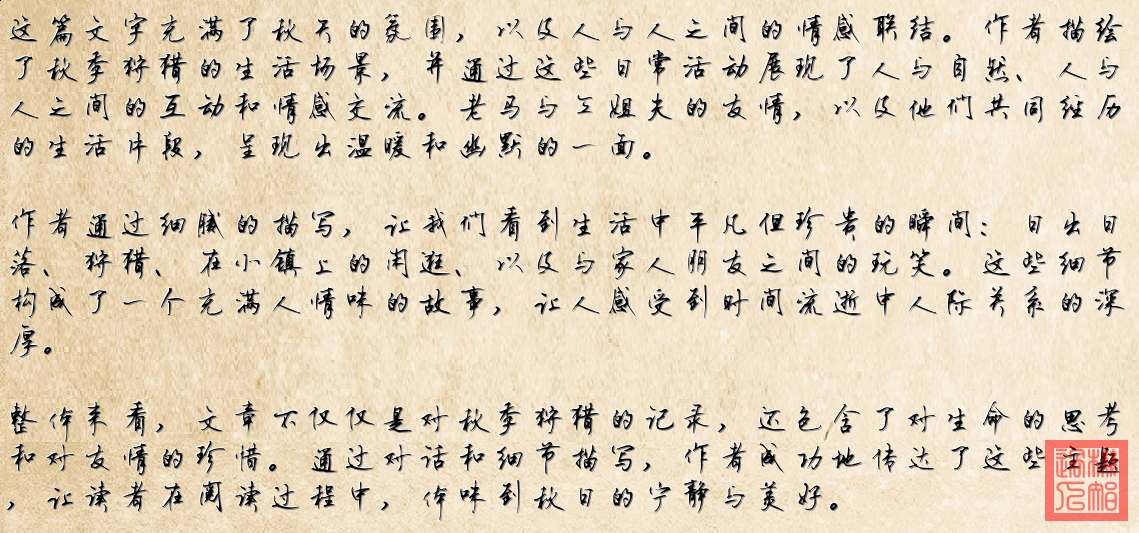 这篇文字充满了秋天的氛围，以及人与人之间的情感联结。作者描绘
了秋季狩猎的生活场景，并通过这些日常活动展现了人与自然、人与
人之间的互动和情感交流。老马与三姐夫的友情，以及他们共同经历
的生活片段，呈现出温暖和幽默的一面。
作者通过细腻的描写，让我们看到生活中平凡但珍贵的瞬间：日出日
落、狩猎、在小镇上的闲逛、以及与家人朋友之间的玩笑。这些细节
构成了一个充满人情味的故事，让人感受到时间流逝中人际关系的深
厚。
整体来看，文章不仅仅是对秋季狩猎的记录，还包含了对生命的思考
和对友情的珍惜。通过对话和细节描写，作者成功地传达了这些主题
，让读者在阅读过程中，体味到秋日的宁静与美好。